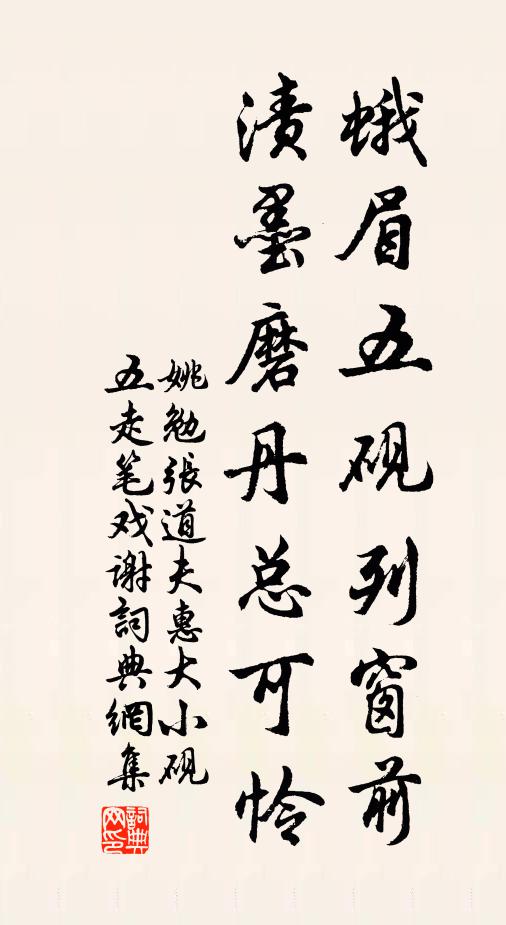 蛾眉五砚列窗前
渍墨磨丹总可怜
姚勉張道夫惠大小砚
五走笔戏谢詞典網集
詞典